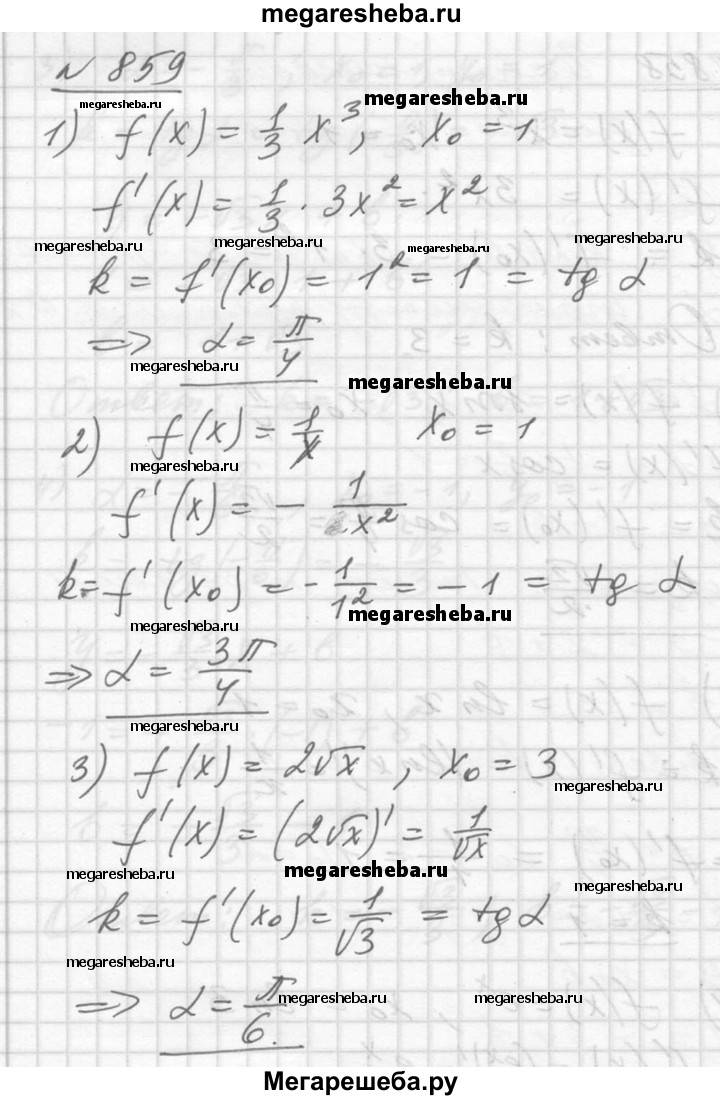 megaresheba.ru
N 859
megaresheba.ru
megaresheba.ru
1) f(x) = 1/3 x³, x₀ = 1
f'(x) = 1/3 · 3x² = x²
megaresheba.ru
megaresheba.ru
megaresheba.ru
megaresheba.ru
k = f'(x₀) = 1² = 1 = tg α
=> α = π/4
megaresheba.ru
megaresheba.ru
2) f(x) = 1/x x₀ = 1
megaresheba.ru
f'(x) = - 1/x²
k = f'(x₀) = - 1/1² = - 1 = tg α
megaresheba.ru
megaresheba.ru
=> α = 3π/4
megaresheba.ru
3) f(x) = 2√x, x₀ = 3
megaresheba.ru
f'(x) = (2√x)' = 1/√x
megaresheba.ru
megaresheba.ru
megaresheba.ru
k = f'(x₀) = 1/√3 = tg α
megaresheba.ru
=> α = π/6.
megaresheba.ru
megaresheba.ru
Мегарешеба.ру